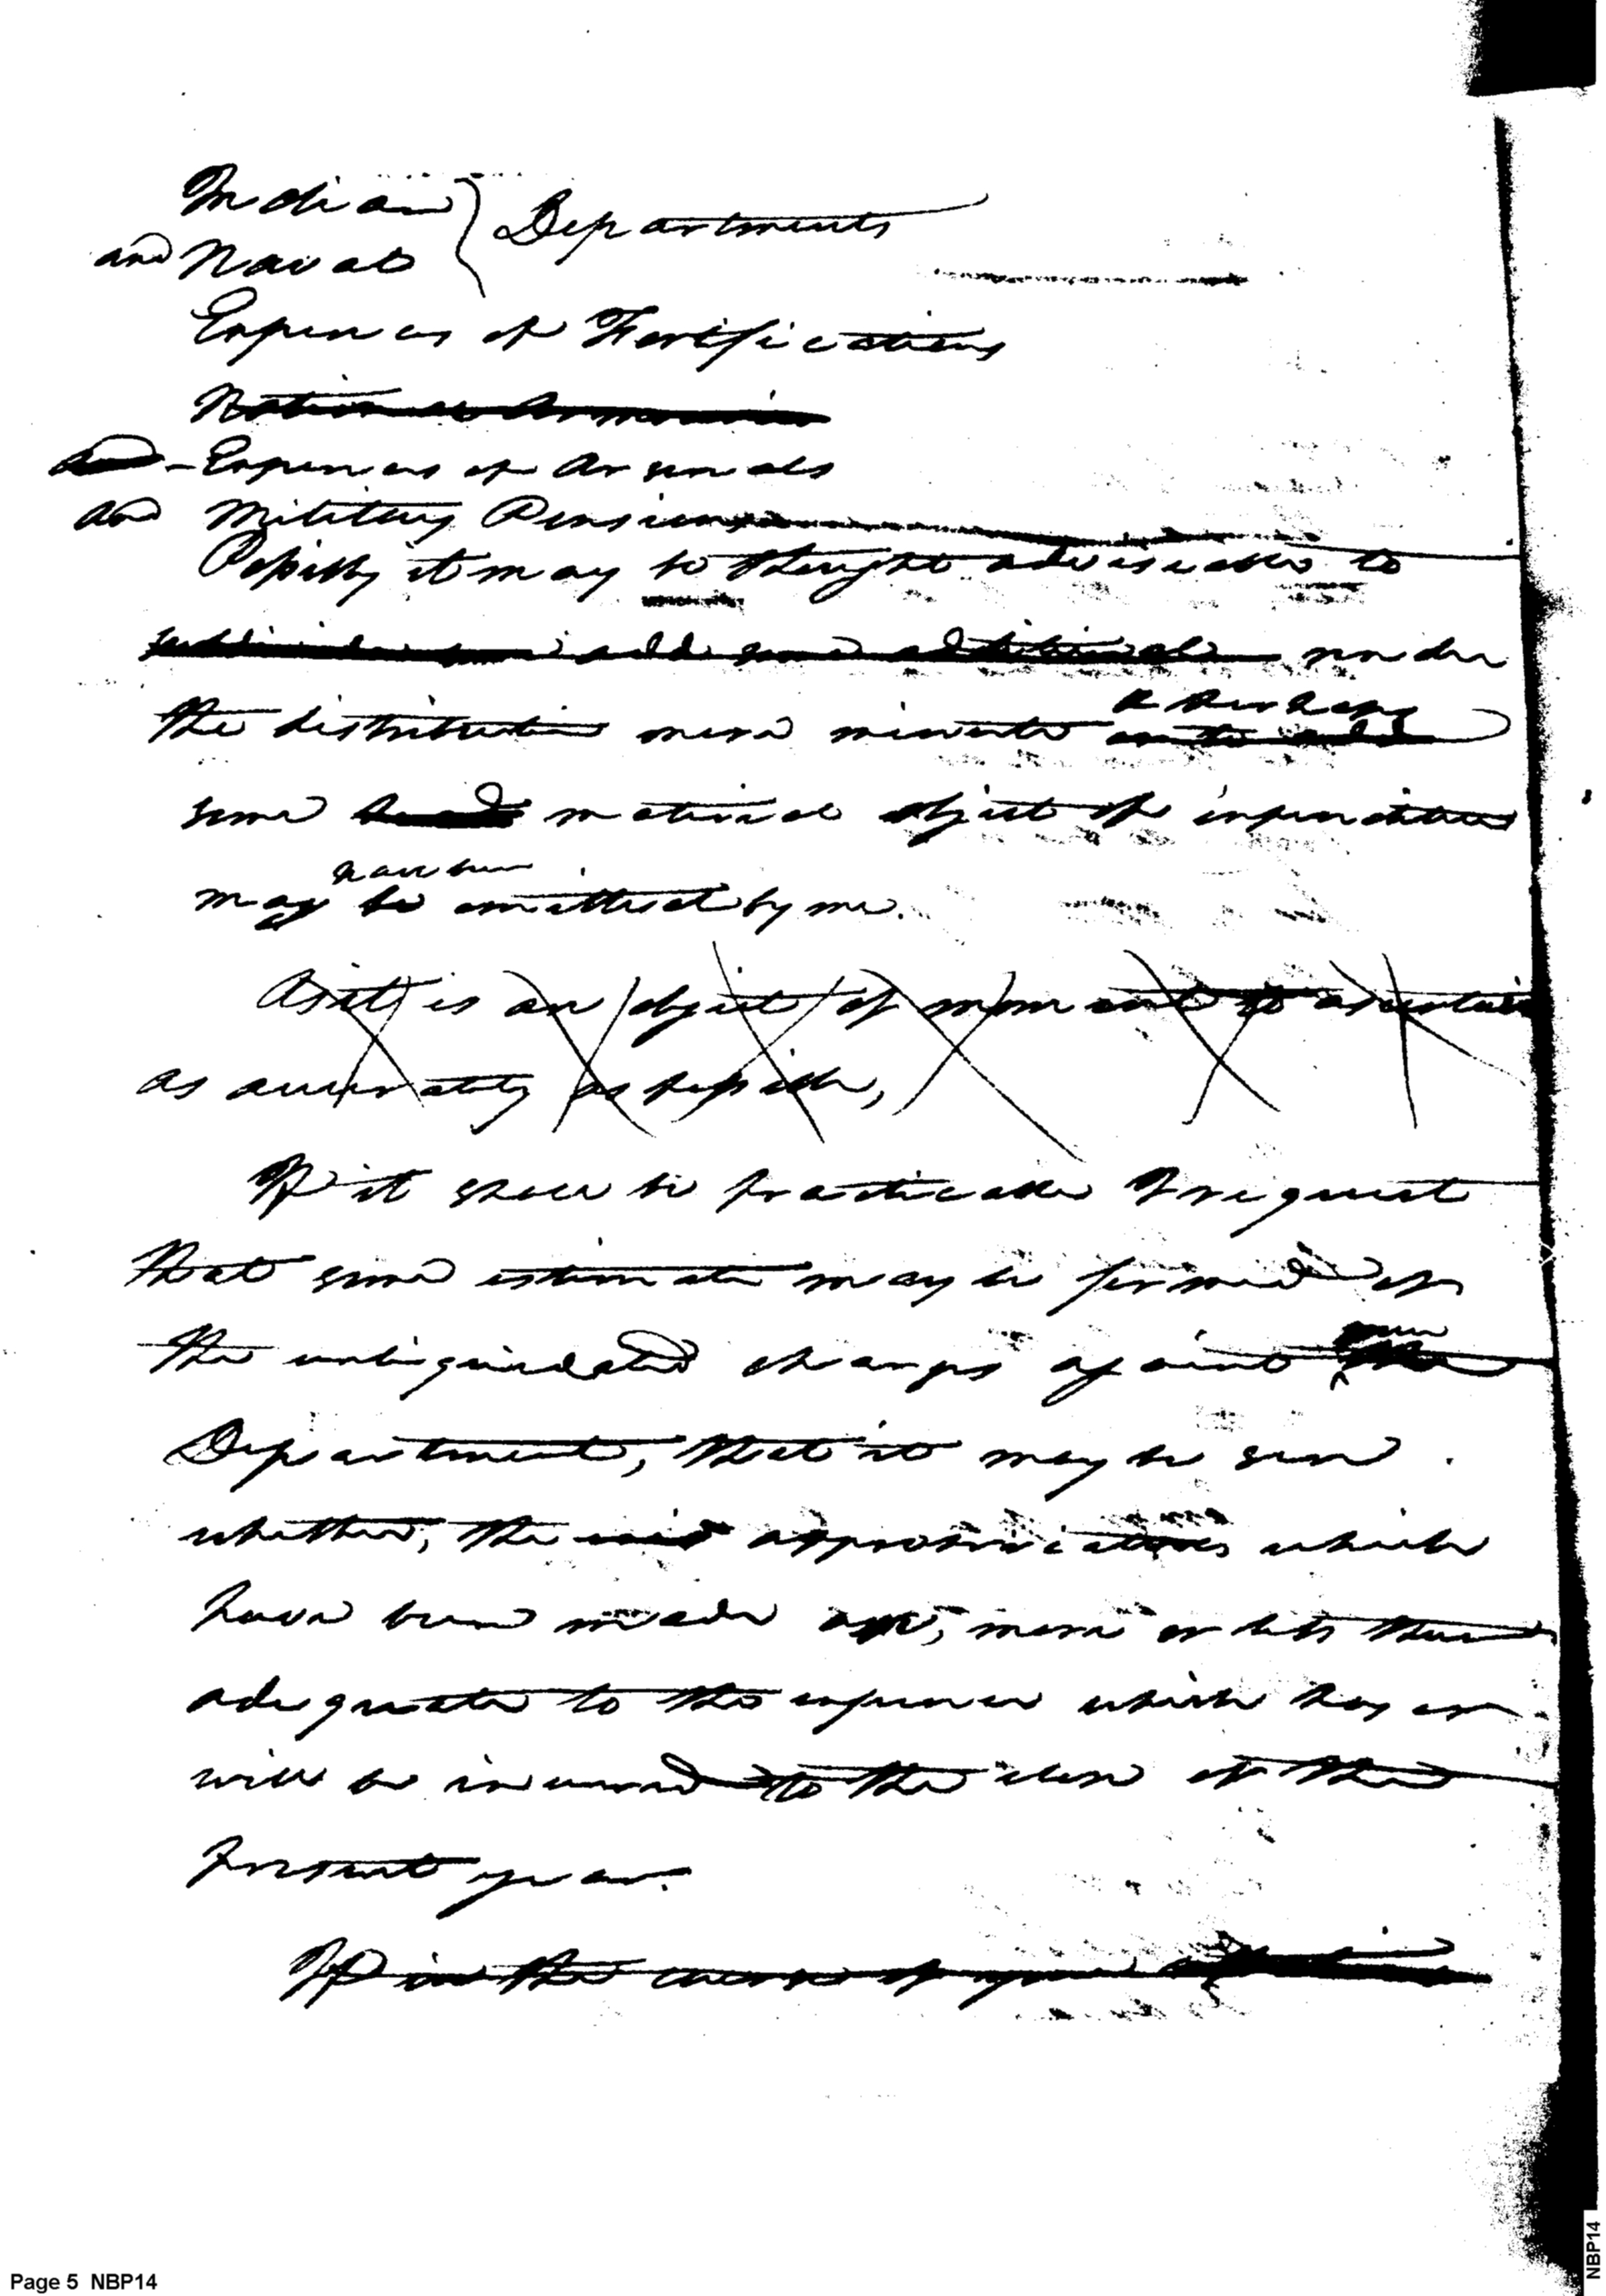 Indian } Departments
and Naval
Expences of Fortifications
National Armories
and - Expences of Arsenals
and Military Pensions
Possibly it may be thought adviseable to
subdivide some add some additional render
the distribution more minute & perhaps
or to add
some head material object of expenditure
have been
may be omitted by me.
As it is an object of moment to ascertain
as accurately as possible,
If it shall be practicable I request
that some estimate may be formed of
the unliquidated charges against your
the
Department, that it may be seen
whether, the said appropriations which
have been made are, more or less than
adequate to the expence which has or
will be incurred to the close of the
present year.
If in the course of your
Page 5 NBP14
NBP14